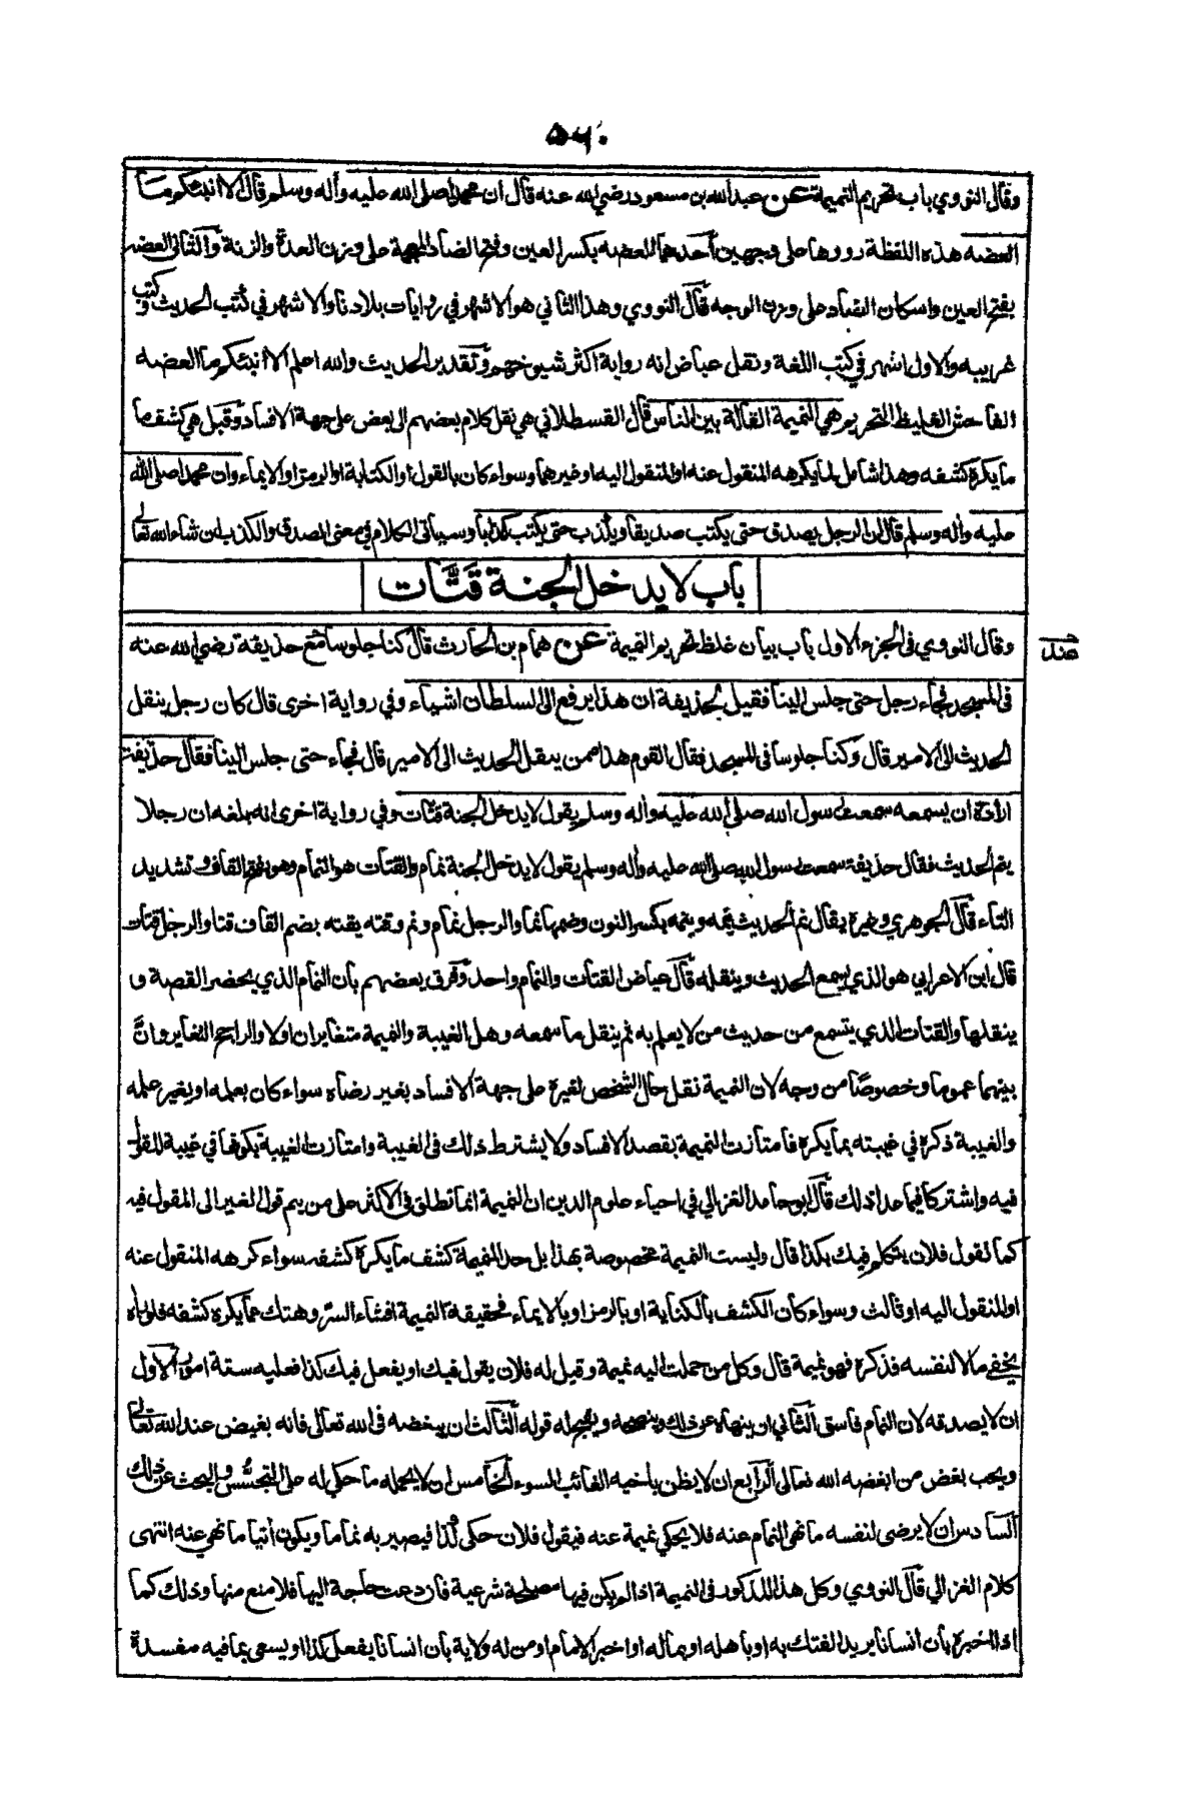 ٥٦٠
وقال النووي باب تحريم النميمة عن عبد الله بن مسعود رضي الله عنه قال ان محمدا صلى الله عليه وأله وسلم قال الا انبئكم ما
العضه هذه اللفظة رووها على وجهين أحدهما العضه بكسر العين وفتح الضاد المعجمة على وزن العدة والزنة والثانى العضه
بفتح العين واسكان الضاد على وزن الوجه قال النووي وهذا الثاني هو الاشهر في روايات بلادنا والاشهر في كتب الحديث وكتب
غريبه والاول اشهر في كتب اللغة ونقل عياض انه رواية اكثر شيوخهم وتقدير الحديث والله اعلم الا انبئكم ما العضه
الفاحش الغليظ التحريم هي النميمة القالة بين الناس قال القسطلاني هي نقل كلام بعضهم الى بعض على جهة الافساد وقيل هي كشف ما
ما يكره كشفه وهذا شامل لما يكرهه المنقول عنه او المنقول اليه او غيرهما وسواء كان بالقول أو الكتابة او الرمز او الايماء وان محمدا صلى الله
عليه وأله وسلم قال ان الرجل يصدق حتى يكتب صديقا ويكذب حتى يكتب كذابا وسياتى الكلام في معنى الصدق والكذب ان شاء الله تعالى
باب لا يدخل الجنة قَتَّات
وقال النووي فى الجزء الاول باب بيان غلظ تحريم النميمة عن همام بن الحارث قال كنا جلوسا مع حذيفة رضي الله عنه
فى المسجد فجاء رجل حتى جلس الينا فقيل لحذيفة ان هذا يرفع الى السلطان اشياء وفي رواية اخرى قال كان رجل ينقل
الحديث الى الامير قال وكنا جلوسا فى المسجد فقال القوم هذا ممن ينقل الحديث الى الامير قال فجاء حتى جلس الينا فقال حذيفة
ارادة ان يسمعه سمعت رسول الله صلى الله عليه وأله وسلم يقول لا يدخل الجنة قتات وفي رواية اخرى انه بلغه ان رجلا
ينم الحديث فقال حذيفة سمعت رسول الله صلى الله عليه وأله وسلم يقول لا يدخل الجنة نمام والقتات هو النمام وهو بفتح القاف وتشديد
التاء قال الجوهري وغيره يقال نم الحديث ينمه وينمه بكسر النون وضمها نما والرجل نمام ونم وقته يقته بضم القاف قتا والرجل قتات
قال ابن الاعرابي هو الذي يسمع الحديث وينقله قال عياض القتات والنمام واحد وفرق بعضهم بأن النمام الذي يحضر القصة و
ينقلها والقتات الذي يتسمع من حديث من لا يعلم به ثم ينقل ما سمعه وهل الغيبة والنميمة متغايران اولا والراجح التغاير وانَّ
بينهما عموما وخصوصًا من وجه لان النميمة نقل حال الشخص لغيره على جهة الافساد بغير رضاه سواء كان بعلمه او بغير علمه
والغيبة ذكره في غيبته بما يكره فامتازت النميمة بقصد الافساد ولا يشترط ذلك فى الغيبة وامتازت الغيبة بكونها في غيبة المقول
فيه واشتركا فيما عدا ذلك قال ابو حامد الغزالي في احياء علوم الدين ان النميمة انما تطلق فى الاكثر على من ينم قول الغير الى المقول فيه
كما تقول فلان يتكلم فيك بكذا قال وليست النميمة مخصوصة بهذا بل حد النميمة كشف ما يكره كشفه سواء كرهه المنقول عنه
او المنقول اليه او ثالث وسواء كان الكشف بالكناية او بالرمز او بالايماء فحقيقة النميمة افشاء السرّ وهتك عما يكره كشفه فلو رأه
يخفي مالا لنفسه فذكره فهو نميمة قال وكل من حملت اليه نميمة وقيل له فلان يقول فيك او يفعل فيك كذا فعليه ستة امور الاول
ان لا يصدقه لان النمام فاسق الثاني ان ينهاه عن ذلك وينصحه ويقبح له قوله الثالث ان يبغضه فى الله تعالى فانه بغيض عند الله تعالى
ويجب بغض من ابغضه الله تعالى الرابع ان لا يظن باخيه الغائب السوء الخامس ان لا يحمله ما حكي له على التجسُّس والبحث عن ذلك
السادس ان لا يرضى لنفسه ما نهى النمام عنه فلا يحكي نميمة عنه فيقول فلان حكى كذا فيصير به نماما ويكون أتيا ما نهي عنه انتهى
كلام الغزالي قال النووي وكل هذا المذكور فى النميمة اذا لم يكن فيها مصلحة شرعية فان دعت حاجة اليها فلا منع منها وذلك كما
اذا اخبره بأن انسانا يريد الفتك به او بأهله او بماله او اخبر الامام او من له ولاية بأن انسانا يفعل كذا او يسعى بما فيه مفسدة